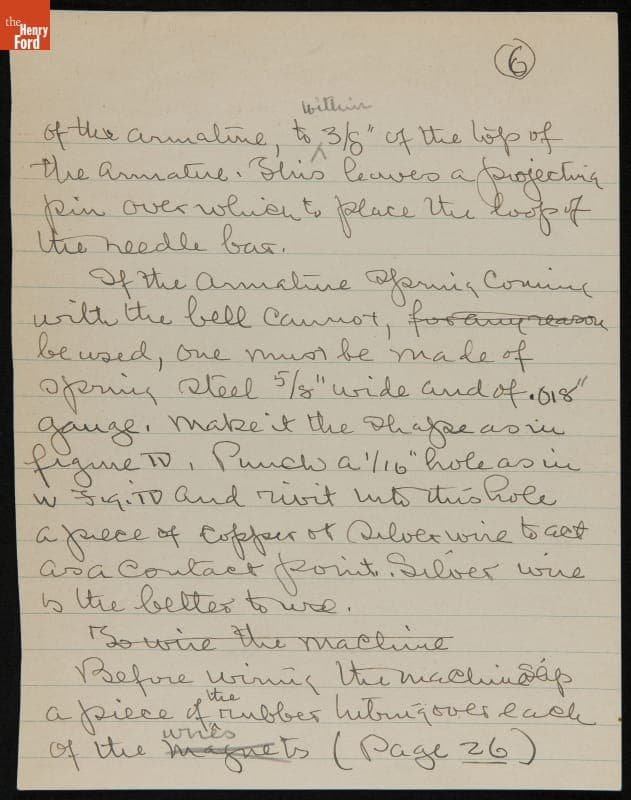 the
Henry
Ford
6
within
of the armature, to 3/8" of the top of
the armature. This leaves a projecting
pin over which to place the loop of
the needle bar.
If the armature spring coming
with the bell cannot, for any reason
be used, one must be made of
spring steel 5/8" wide and of .018"
gauge. Make it the shape as in
figure IV. Punch a 1/16" hole as in
W Fig. IV and rivit into this hole
a piece of copper or silver wire to act
as a contact point. Silver wire
is the better to use.
To wire the machine
Before wiring the machine slip
a piece of the rubber tubing over each
of the magnets wires (Page 26)